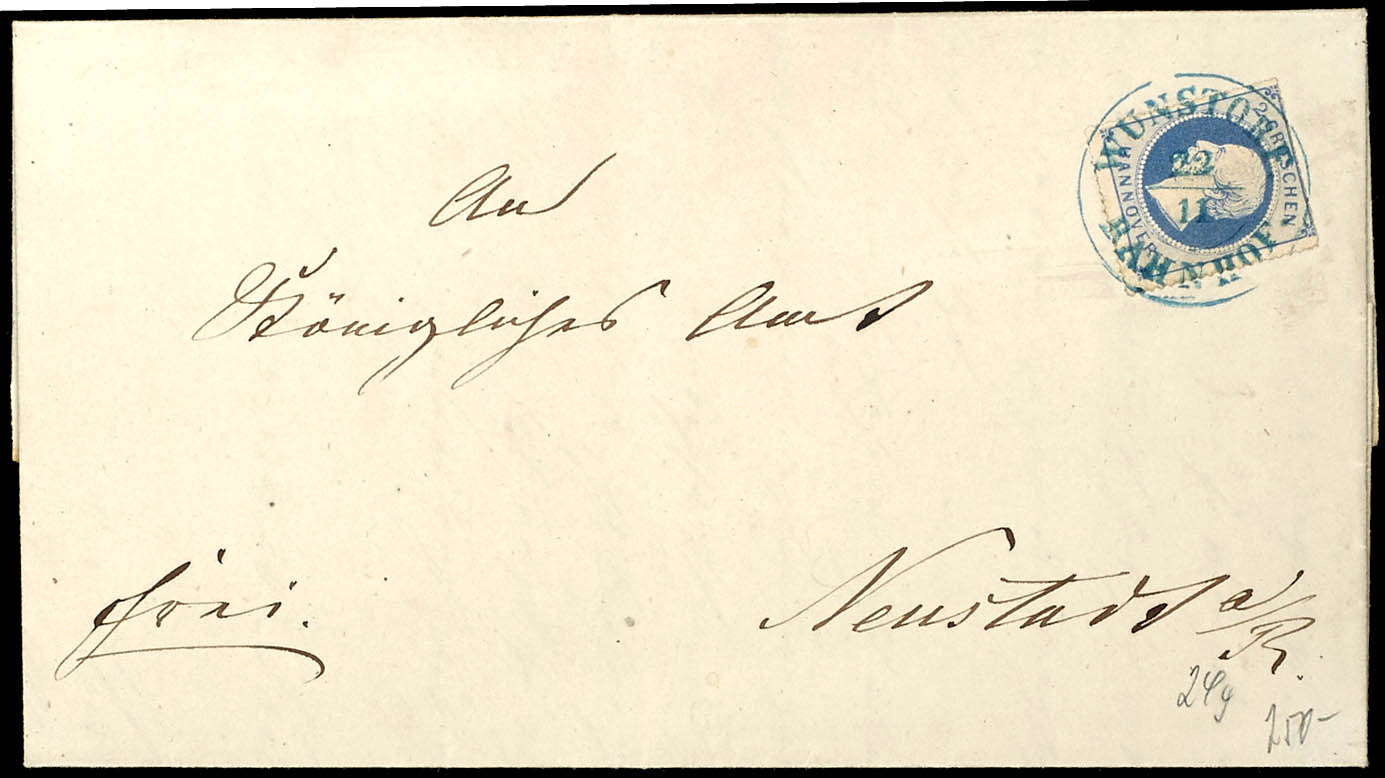 WUNSTORF
22
11
BAHNHOF
2 GROSCHEN
HANNOVER
An
Königliches Amt
frei.
Neustadt a/R.
24y
250-